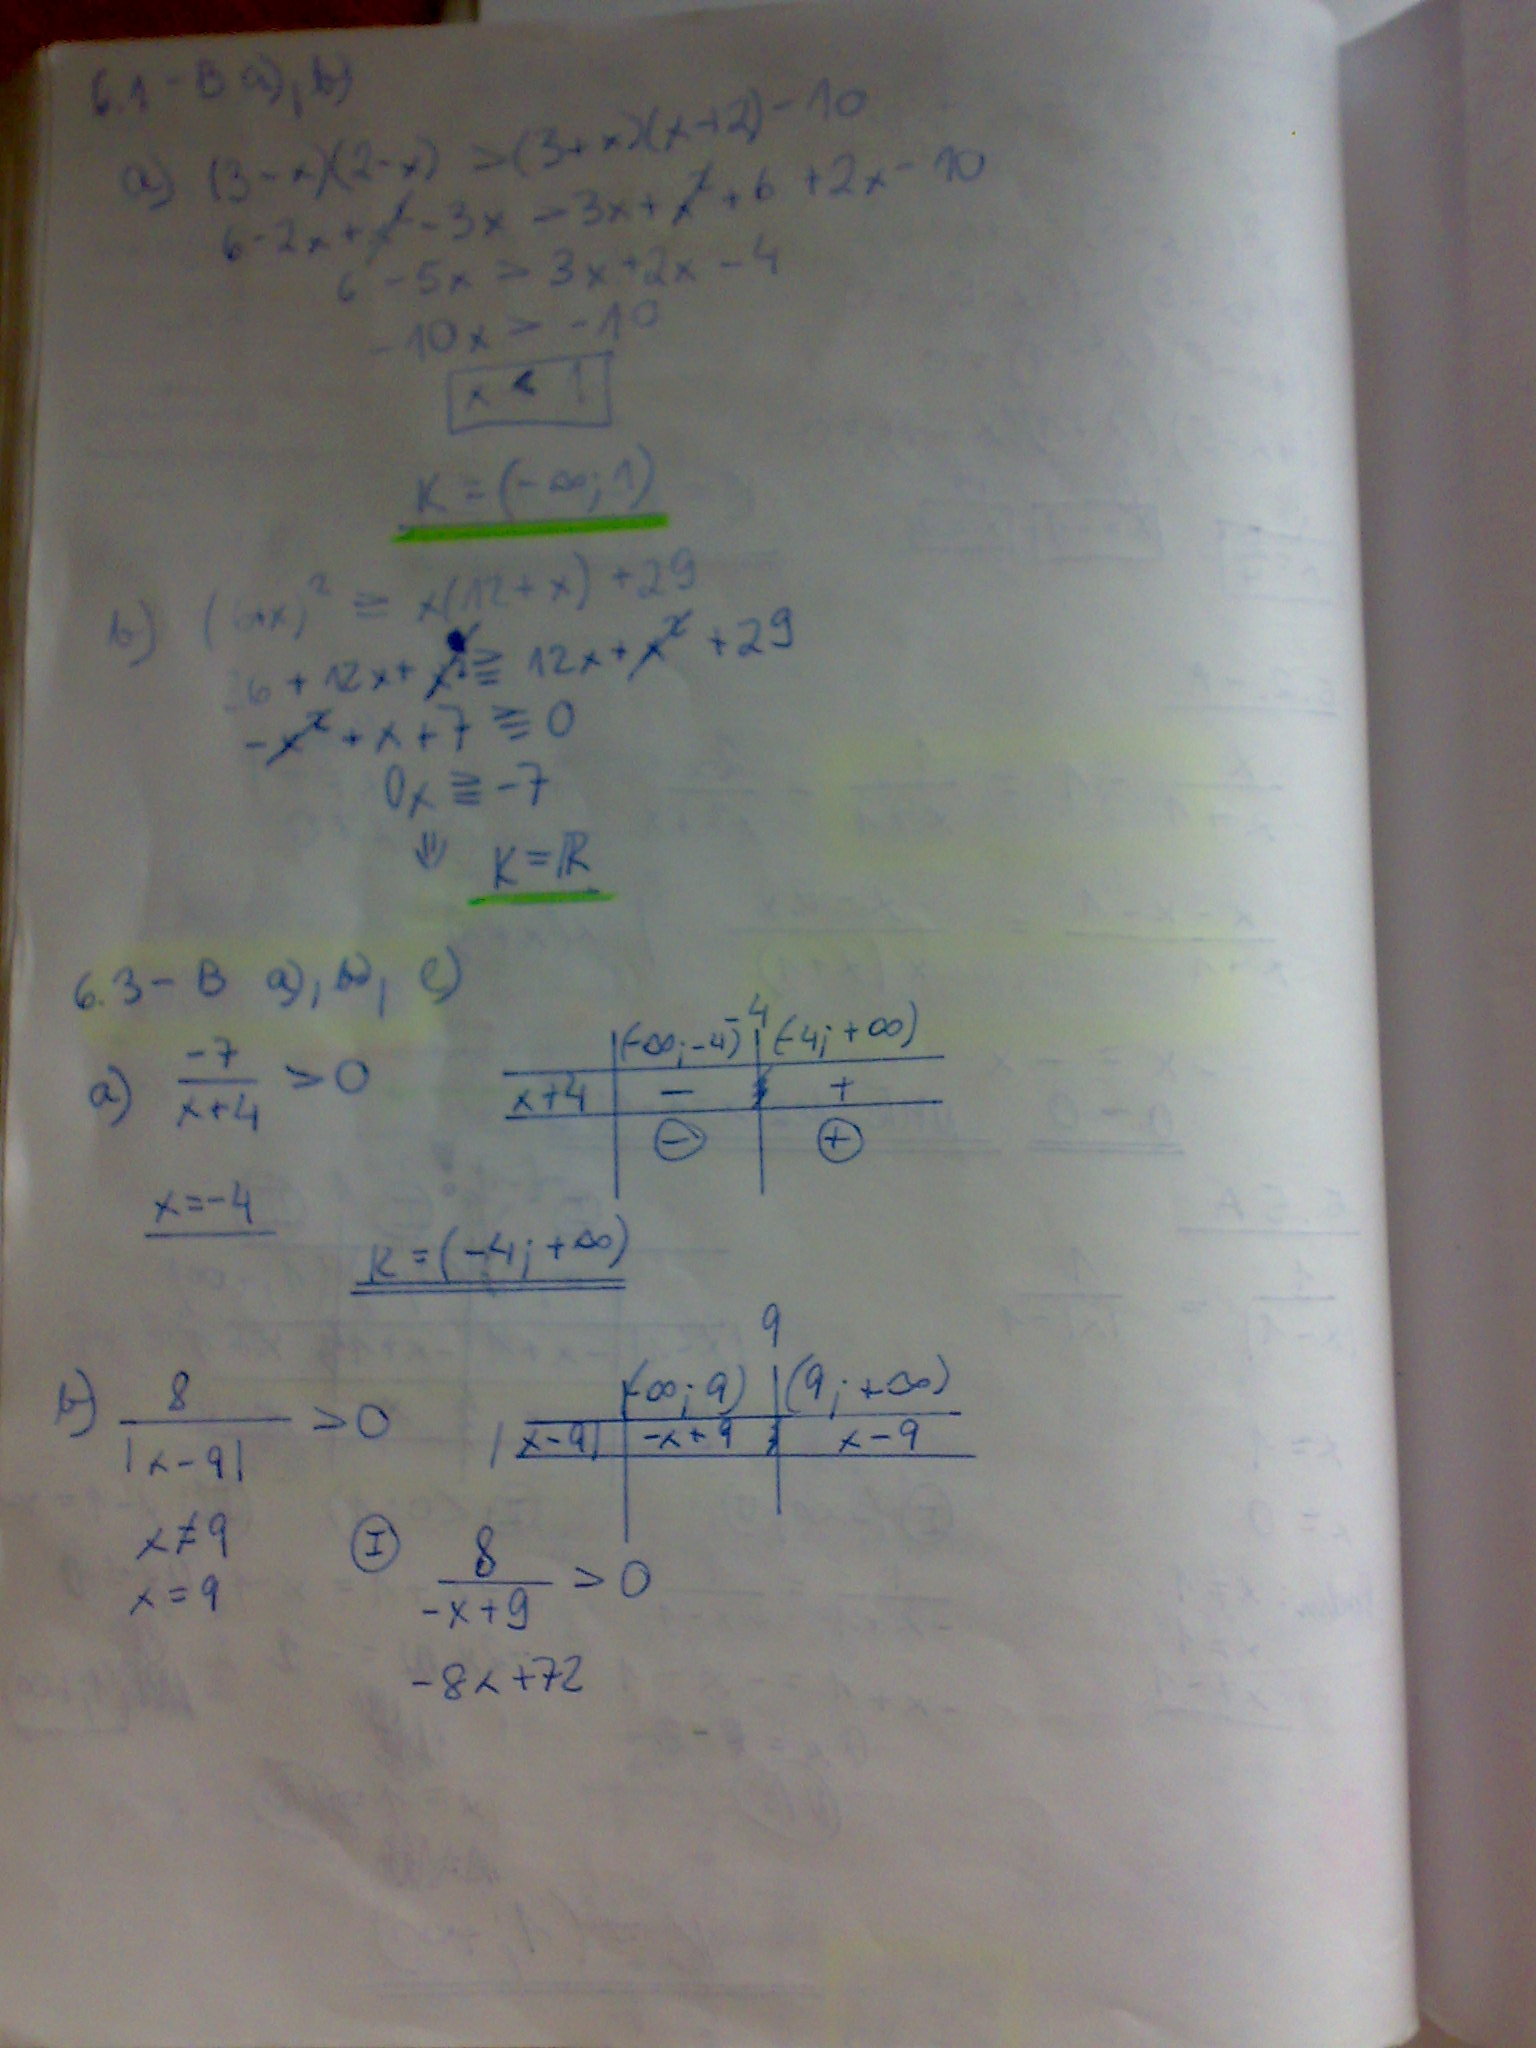 6.1 - B a), b)
a) (3-x)(2-x) > (3+x)(x+2) - 10
6 - 2x + x² - 3x > 3x + x² + 6 + 2x - 10
6 - 5x > 3x + 2x - 4
-10x > -10
x < 1
K = (-∞; 1)
b) (6+x)² ≥ x(12+x) + 29
36 + 12x + x² ≥ 12x + x² + 29
-x² + x + 7 ≥ 0
0x ≥ -7
⇓ K = ℝ
6.3 - B a), b), c)
a) -7/(x+4) > 0
-4
(-∞; -4) (-4; +∞)
x+4 - +
- +
x = -4
K = (-4; +∞)
9
b) 8/|x-9| > 0
(-∞; 9) (9; +∞)
|x-9| -x+9 x-9
x ≠ 9
x = 9
I 8/(-x+9) > 0
-8x + 72